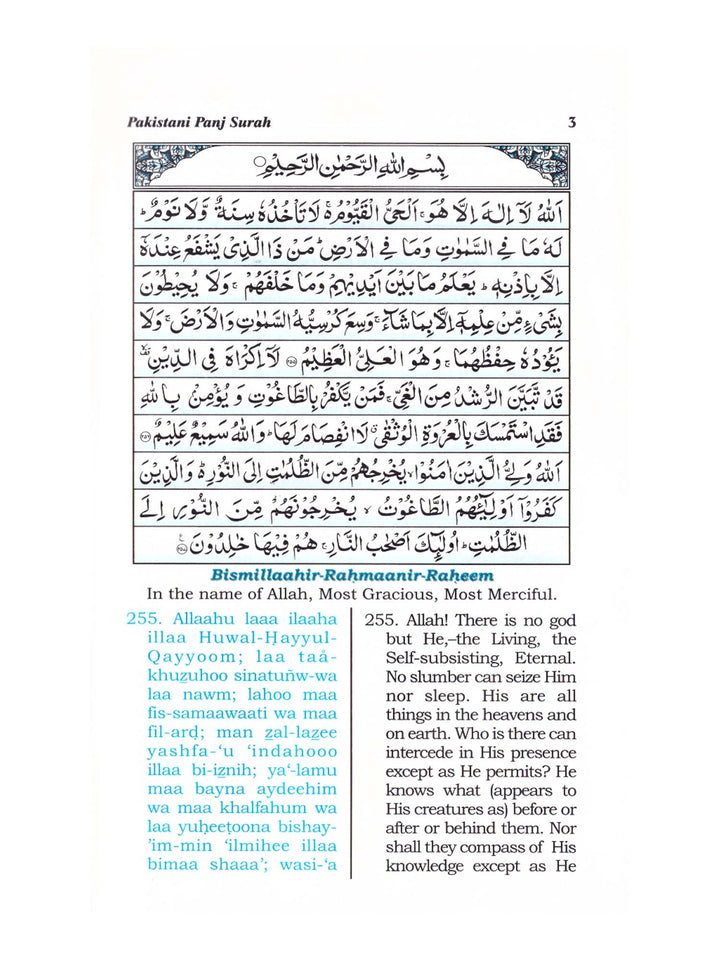 Pakistani Panj Surah 3
بِسْمِ اللهِ الرَّحْمٰنِ الرَّحِيْمِ ○
اَللهُ لَاۤ اِلٰهَ اِلَّا هُوَ ۚ اَلْحَیُّ الْقَیُّوْمُ ۚ لَا تَاْخُذُهٗ سِنَةٌ وَّلَا نَوْمٌ ؕ
لَهٗ مَا فِی السَّمٰوٰتِ وَمَا فِی الْاَرْضِ ؕ مَنْ ذَا الَّذِیْ یَشْفَعُ عِنْدَهٗۤ
اِلَّا بِاِذْنِهٖ ؕ یَعْلَمُ مَا بَیْنَ اَیْدِیْهِمْ وَمَا خَلْفَهُمْ ۚ وَلَا یُحِیْطُوْنَ
بِشَیْءٍ مِّنْ عِلْمِهٖۤ اِلَّا بِمَا شَآءَ ۚ وَسِعَ کُرْسِیُّهُ السَّمٰوٰتِ وَالْاَرْضَ ۚ وَلَا
یَـُٔوْدُهٗ حِفْظُهُمَا ۚ وَهُوَ الْعَلِیُّ الْعَظِیْمُ ﴿۲۵۵﴾ لَاۤ اِکْرَاهَ فِی الدِّیْنِ ۙ
قَدْ تَّبَیَّنَ الرُّشْدُ مِنَ الْغَیِّ ۚ فَمَنْ یَّکْفُرْ بِالطَّاغُوْتِ وَ یُؤْمِنْۢ بِاللهِ
فَقَدِ اسْتَمْسَکَ بِالْعُرْوَةِ الْوُثْقٰی ۗ لَا انْفِصَامَ لَهَا ؕ وَاللهُ سَمِیْعٌ عَلِیْمٌ ﴿۲۵۶﴾
اَللهُ وَلِیُّ الَّذِیْنَ اٰمَنُوْا ۙ یُخْرِجُهُمْ مِّنَ الظُّلُمٰتِ اِلَی النُّوْرِ ؕ۬ وَالَّذِیْنَ
کَفَرُوْۤا اَوْلِیٰٓـُٔهُمُ الطَّاغُوْتُ ۙ یُخْرِجُوْنَهُمْ مِّنَ النُّوْرِ اِلَی
الظُّلُمٰتِ ؕ اُولٰٓئِکَ اَصْحٰبُ النَّارِ ۚ هُمْ فِیْهَا خٰلِدُوْنَ ﴿۲۵۷﴾ ع
Bismillaahir-Raḥmaanir-Raḥeem
In the name of Allah, Most Gracious, Most Merciful.
255. Allaahu laaa ilaaha
illaa Huwal-Ḥayyul-
Qayyoom; laa taå-
khuz̲uhoo sinatuñw-wa
laa nawm; lahoo maa
fis-samaawaati wa maa
fil-arḍ; man z̲al-laz̲ee
yashfa-‘u ‘indahooo
illaa bi-iz̲nih; ya‘-lamu
maa bayna aydeehim
wa maa khalfahum wa
laa yuḥeeṭoona bishay-
’im-min ‘ilmihee illaa
bimaa shaaa’; wasi-‘a
255. Allah! There is no god
but He,–the Living, the
Self-subsisting, Eternal.
No slumber can seize Him
nor sleep. His are all
things in the heavens and
on earth. Who is there can
intercede in His presence
except as He permits? He
knows what (appears to
His creatures as) before or
after or behind them. Nor
shall they compass of His
knowledge except as He